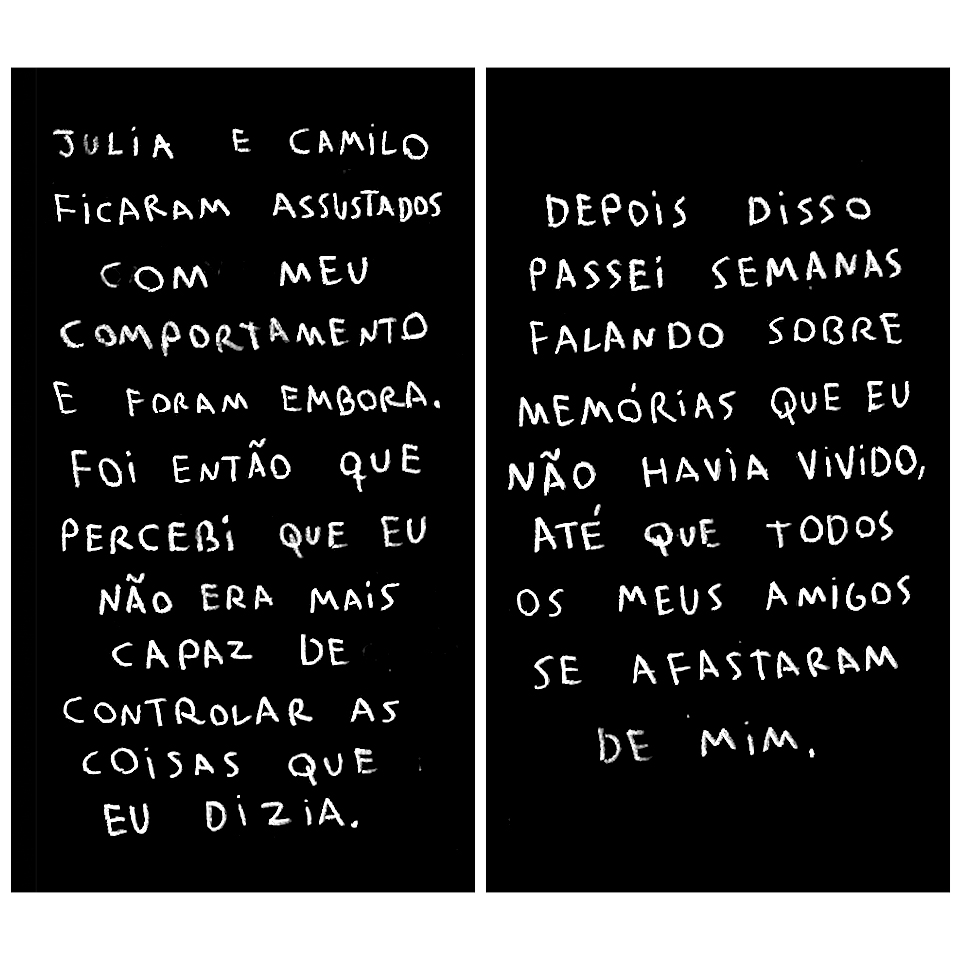 JULiA E CAMiLO
FiCARAM ASSUSTADOS
COM MEU
COMPORTAMENTO
E FORAM EMBORA.
FOi ENTÃO QUE
PERCEBi QUE EU
NÃO ERA MAiS
CAPAZ DE
CONTROLAR AS
COiSAS QUE
EU DiZiA.
DEPOiS DiSSO
PASSEi SEMANAS
FALANDO SOBRE
MEMÓRiAS QUE EU
NÃO HAViA ViViDO,
ATÉ QUE TODOS
OS MEUS AMiGOS
SE AFASTARAM
DE MiM.